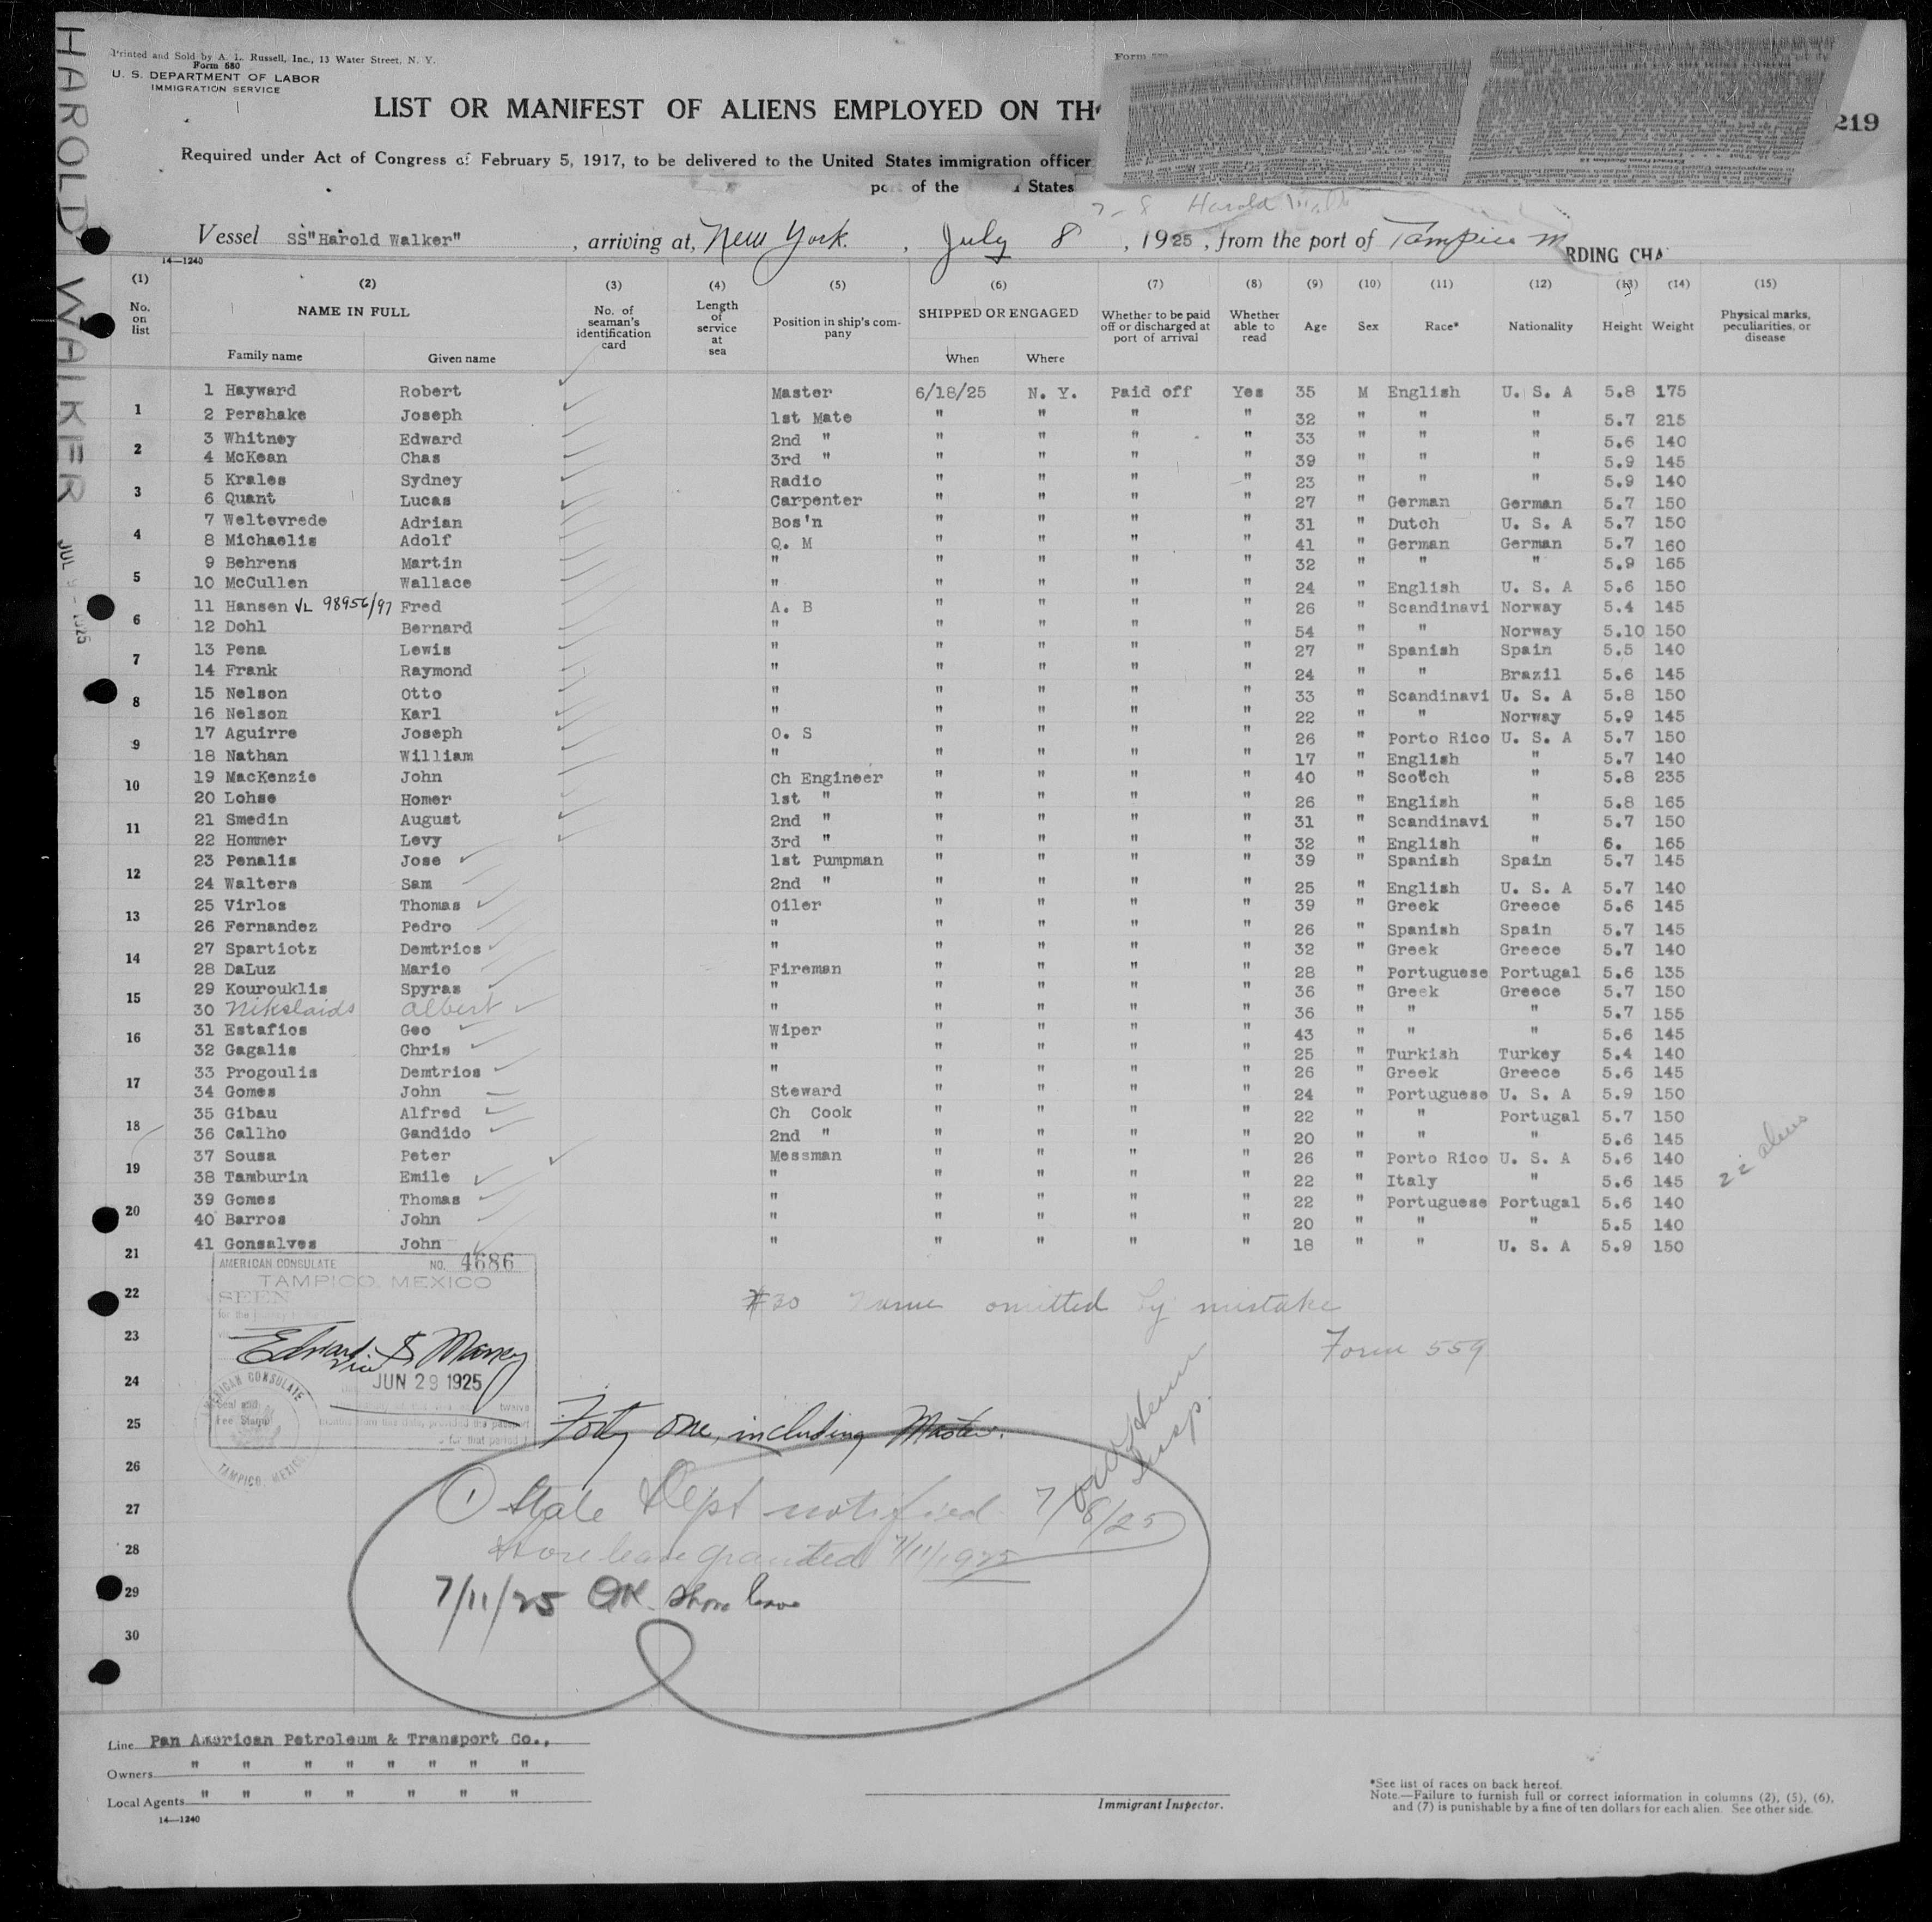 HAROLD WALKER JUL
Printed and Sold by A. L. Russell, Inc., 13 Water Street, N. Y.
Form 680
U. S. DEPARTMENT OF LABOR
IMMIGRATION SERVICE
LIST OR MANIFEST OF ALIENS EMPLOYED ON TH
219
Required under Act of Congress of February 5, 1917, to be delivered to the United States immigration officer
of the States
Harold
Vessel SS"Harold Walker", arriving at, New York. , July 8 , 1925, from the port of Tampico M
RDING CHA
14—1240
(1) (2) (3) (4) (5) (6) (7) (8) (9) (10) (11) (12) (13) (14) (15)
No. on list NAME IN FULL No. of seaman's identification card Length of service at sea Position in ship's company SHIPPED OR ENGAGED Whether to be paid off or discharged at port of arrival Whether able to read Age Sex Race* Nationality Height Weight Physical marks, peculiarities, or disease
Family name Given name When Where
1 Hayward Robert Master 6/18/25 N. Y. Paid off Yes 35 M English U. S. A 5.8 175
1
2 Pershake Joseph 1st Mate " " " " 32 " " " 5.7 215
3 Whitney Edward 2nd " " " " " 33 " " " 5.6 140
2
4 McKean Chas 3rd " " " " " 39 " " " 5.9 145
5 Krales Sydney Radio " " " " 23 " " " 5.9 140
3
6 Quant Lucas Carpenter " " " " 27 " German German 5.7 150
7 Weltevrede Adrian Bos'n " " " " 31 " Dutch U. S. A 5.7 150
4
8 Michaelis Adolf Q. M " " " " 41 " German German 5.7 160
9 Behrens Martin " " " " " 32 " " " 5.9 165
5
10 McCullen Wallace " " " " " 24 " English U. S. A 5.6 150
11 Hansen VL 98956/97 Fred A. B " " " " 26 " Scandinavi Norway 5.4 145
6
12 Dohl Bernard " " " " " 54 " " Norway 5.10 150
13 Pena Lewis " " " " " 27 " Spanish Spain 5.5 140
7
14 Frank Raymond " " " " " 24 " " Brazil 5.6 145
15 Nelson Otto " " " " " 33 " Scandinavi U. S. A 5.8 150
8
16 Nelson Karl " " " " " 22 " " Norway 5.9 145
17 Aguirre Joseph O. S " " " " 26 " Porto Rico U. S. A 5.7 150
9
18 Nathan William " " " " " 17 " English " 5.7 140
19 MacKenzie John Ch Engineer " " " " 40 " Scotch " 5.8 235
10
20 Lohse Homer 1st " " " " " 26 " English " 5.8 165
21 Smedin August 2nd " " " " " 31 " Scandinavi " 5.7 150
11
22 Hommer Levy 3rd " " " " " 32 " English " 6. 165
23 Penalis Jose 1st Pumpman " " " " 39 " Spanish Spain 5.7 145
12
24 Walters Sam 2nd " " " " " 25 " English U. S. A 5.7 140
25 Virlos Thomas Oiler " " " " 39 " Greek Greece 5.6 145
13
26 Fernandez Pedro " " " " " 26 " Spanish Spain 5.7 145
27 Spartiotz Demtrios " " " " " 32 " Greek Greece 5.7 140
14
28 DaLuz Mario Fireman " " " " 28 " Portuguese Portugal 5.6 135
29 Kourouklis Spyras " " " " " 36 " Greek Greece 5.7 150
15
30 Nikolaids Albert " " " " " 36 " " " 5.7 155
31 Estafios Geo Wiper " " " " 43 " " " 5.6 145
16
32 Gagalis Chris " " " " " 25 " Turkish Turkey 5.4 140
33 Progoulis Demtrios " " " " " 26 " Greek Greece 5.6 145
17
34 Gomes John Steward " " " " 24 " Portuguese U. S. A 5.9 150
35 Gibau Alfred Ch Cook " " " " 22 " " Portugal 5.7 150
18
36 Callho Gandido 2nd " " " " " 20 " " " 5.6 145
37 Sousa Peter Messman " " " " 26 " Porto Rico U. S. A 5.6 140
19
38 Tamburin Emile " " " " " 22 " Italy " 5.6 145
22 aliens
39 Gomes Thomas " " " " " 22 " Portuguese Portugal 5.6 140
20
40 Barros John " " " " " 20 " " " 5.5 140
41 Gonsalves John " " " " " 18 " " U. S. A 5.9 150
21
AMERICAN CONSULATE NO. 4686
TAMPICO, MEXICO
SEEN
22
#30 Name omitted by mistake
23
Form 559
JUN 29 1925
24
AMERICAN CONSULATE
TAMPICO, MEXICO
25
Forty one, including Master.
Insp.
26
1 State Dept notified 7/8/25
27
Shore leave granted 7/11/1925
28
7/11/25 OK. Shore leave
29
30
Line Pan American Petroleum & Transport Co.,
Owners " " " " " " " "
Local Agents " " " " " " "
14—1240
Immigrant Inspector.
*See list of races on back hereof.
Note.—Failure to furnish full or correct information in columns (2), (5), (6),
and (7) is punishable by a fine of ten dollars for each alien. See other side.